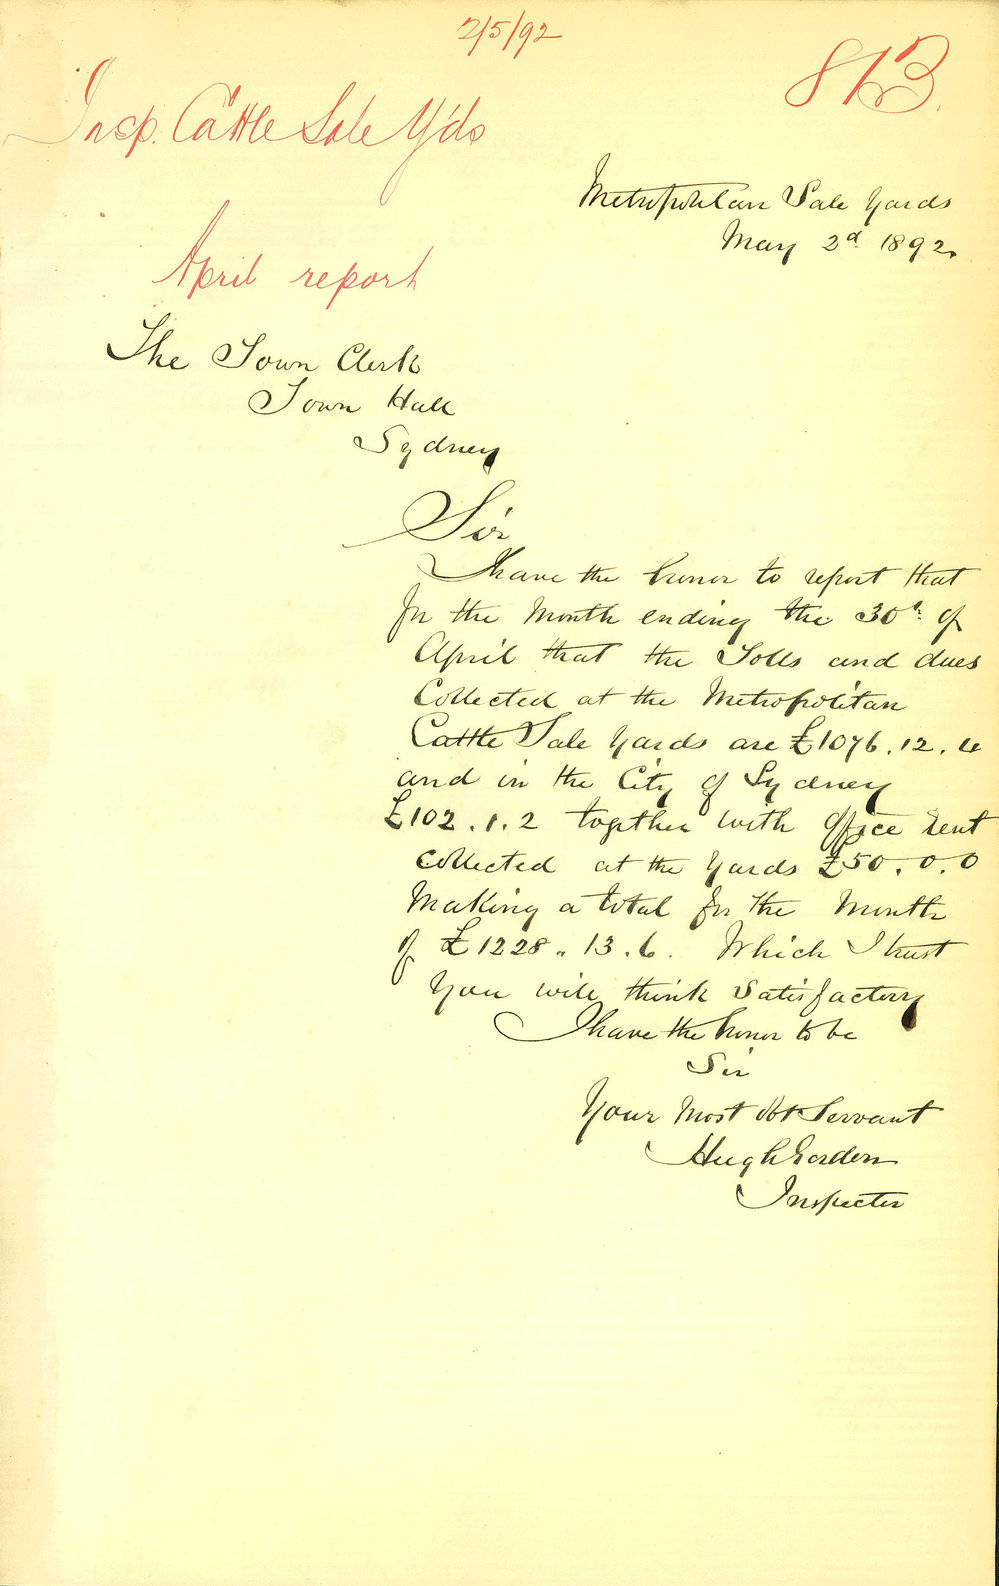 2/5/92
813.
Insp. Cattle Sale Yds
Metropolitan Sale Yards
May 2d. 1892.
April report
The Town Clerk
Town Hall
Sydney
Sir
I have the honor to report that
for the Month ending the 30th. of
April that the Tolls and dues
Collected at the Metropolitan
Cattle Sale Yards are £1076.12.4
and in the City of Sydney
£102.1.2 together with office rent
collected at the Yards £50.0.0
Making a total for the Month
of £1228.13.6. Which I trust
you will think satisfactory
I have the honor to be
Sir
Your Most Obt Servant
Hugh Gordon
Inspector